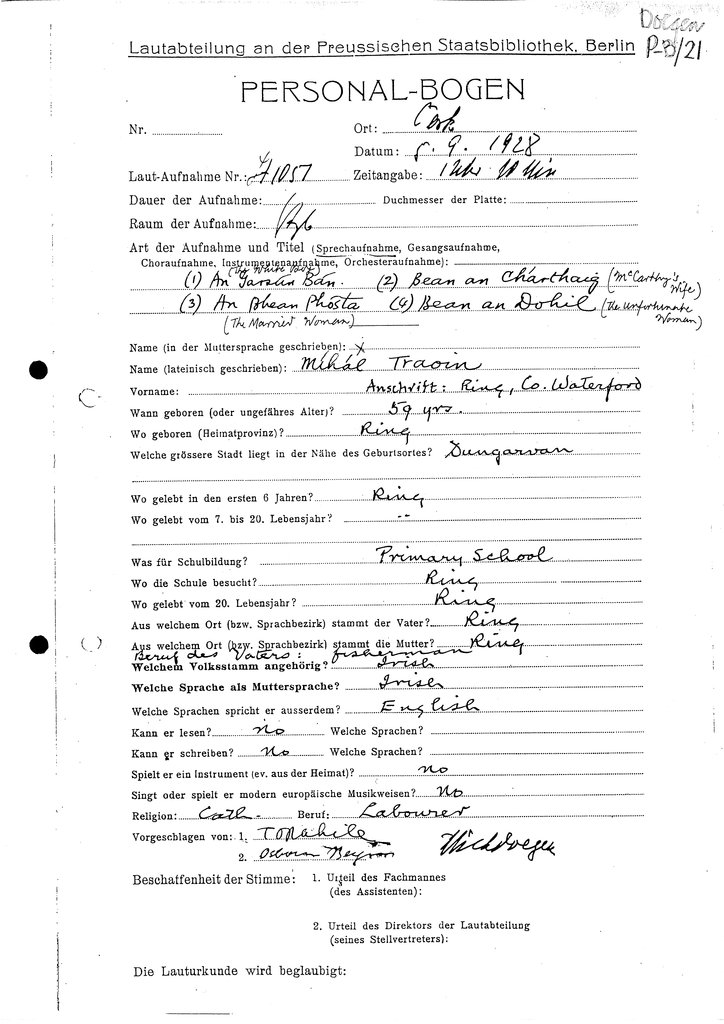 Doegen
Lautabteilung an der Preussischen Staatsbibliothek, Berlin P-B/21
PERSONAL-BOGEN
Nr. Ort: Cork
Datum: 5. 9. 1928
Laut-Aufnahme Nr.: 1057 Zeitangabe: 1 Uhr 10 Min
Dauer der Aufnahme: Duchmesser der Platte:
Raum der Aufnahme:
Art der Aufnahme und Titel (Sprechaufnahme, Gesangsaufnahme,
Choraufnahme, Instrumentenaufnahme, Orchesteraufnahme):
(The White Boy)
(1) An Garsún Bán. (2) Bean an Chárthaig (McCarthy's Wife)
(3) An Bhean Phósta (4) Bean an Dohil (the unfortunate Woman)
(The Married Woman)
Name (in der Muttersprache geschrieben): X
Name (lateinisch geschrieben): Mihál Traoin
Vorname: Anschrift: Ring, Co. Waterford
Wann geboren (oder ungefähres Alter)? 59 yrs.
Wo geboren (Heimatprovinz)? Ring
Welche grössere Stadt liegt in der Nähe des Geburtsortes? Dungarvan
Wo gelebt in den ersten 6 Jahren? Ring
Wo gelebt vom 7. bis 20. Lebensjahr? --
Was für Schulbildung? Primary School
Wo die Schule besucht? Ring
Wo gelebt vom 20. Lebensjahr? Ring
Aus welchem Ort (bzw. Sprachbezirk) stammt der Vater? Ring
Aus welchem Ort (bzw. Sprachbezirk) stammt die Mutter? Ring
Beruf des Vaters: fisherman
Welchem Volksstamm angehörig? Irish
Welche Sprache als Muttersprache? Irish
Welche Sprachen spricht er ausserdem? English
Kann er lesen? no Welche Sprachen?
Kann er schreiben? No Welche Sprachen?
Spielt er ein Instrument (ev. aus der Heimat)? no
Singt oder spielt er modern europäische Musikweisen? No
Religion: Cath. Beruf: Labourer
Vorgeschlagen von: 1. T O Rahile
2. Osborn Bergin Wilh Doegen
Beschaffenheit der Stimme: 1. Urteil des Fachmannes
(des Assistenten):
2. Urteil des Direktors der Lautabteilung
(seines Stellvertreters):
Die Lauturkunde wird beglaubigt: